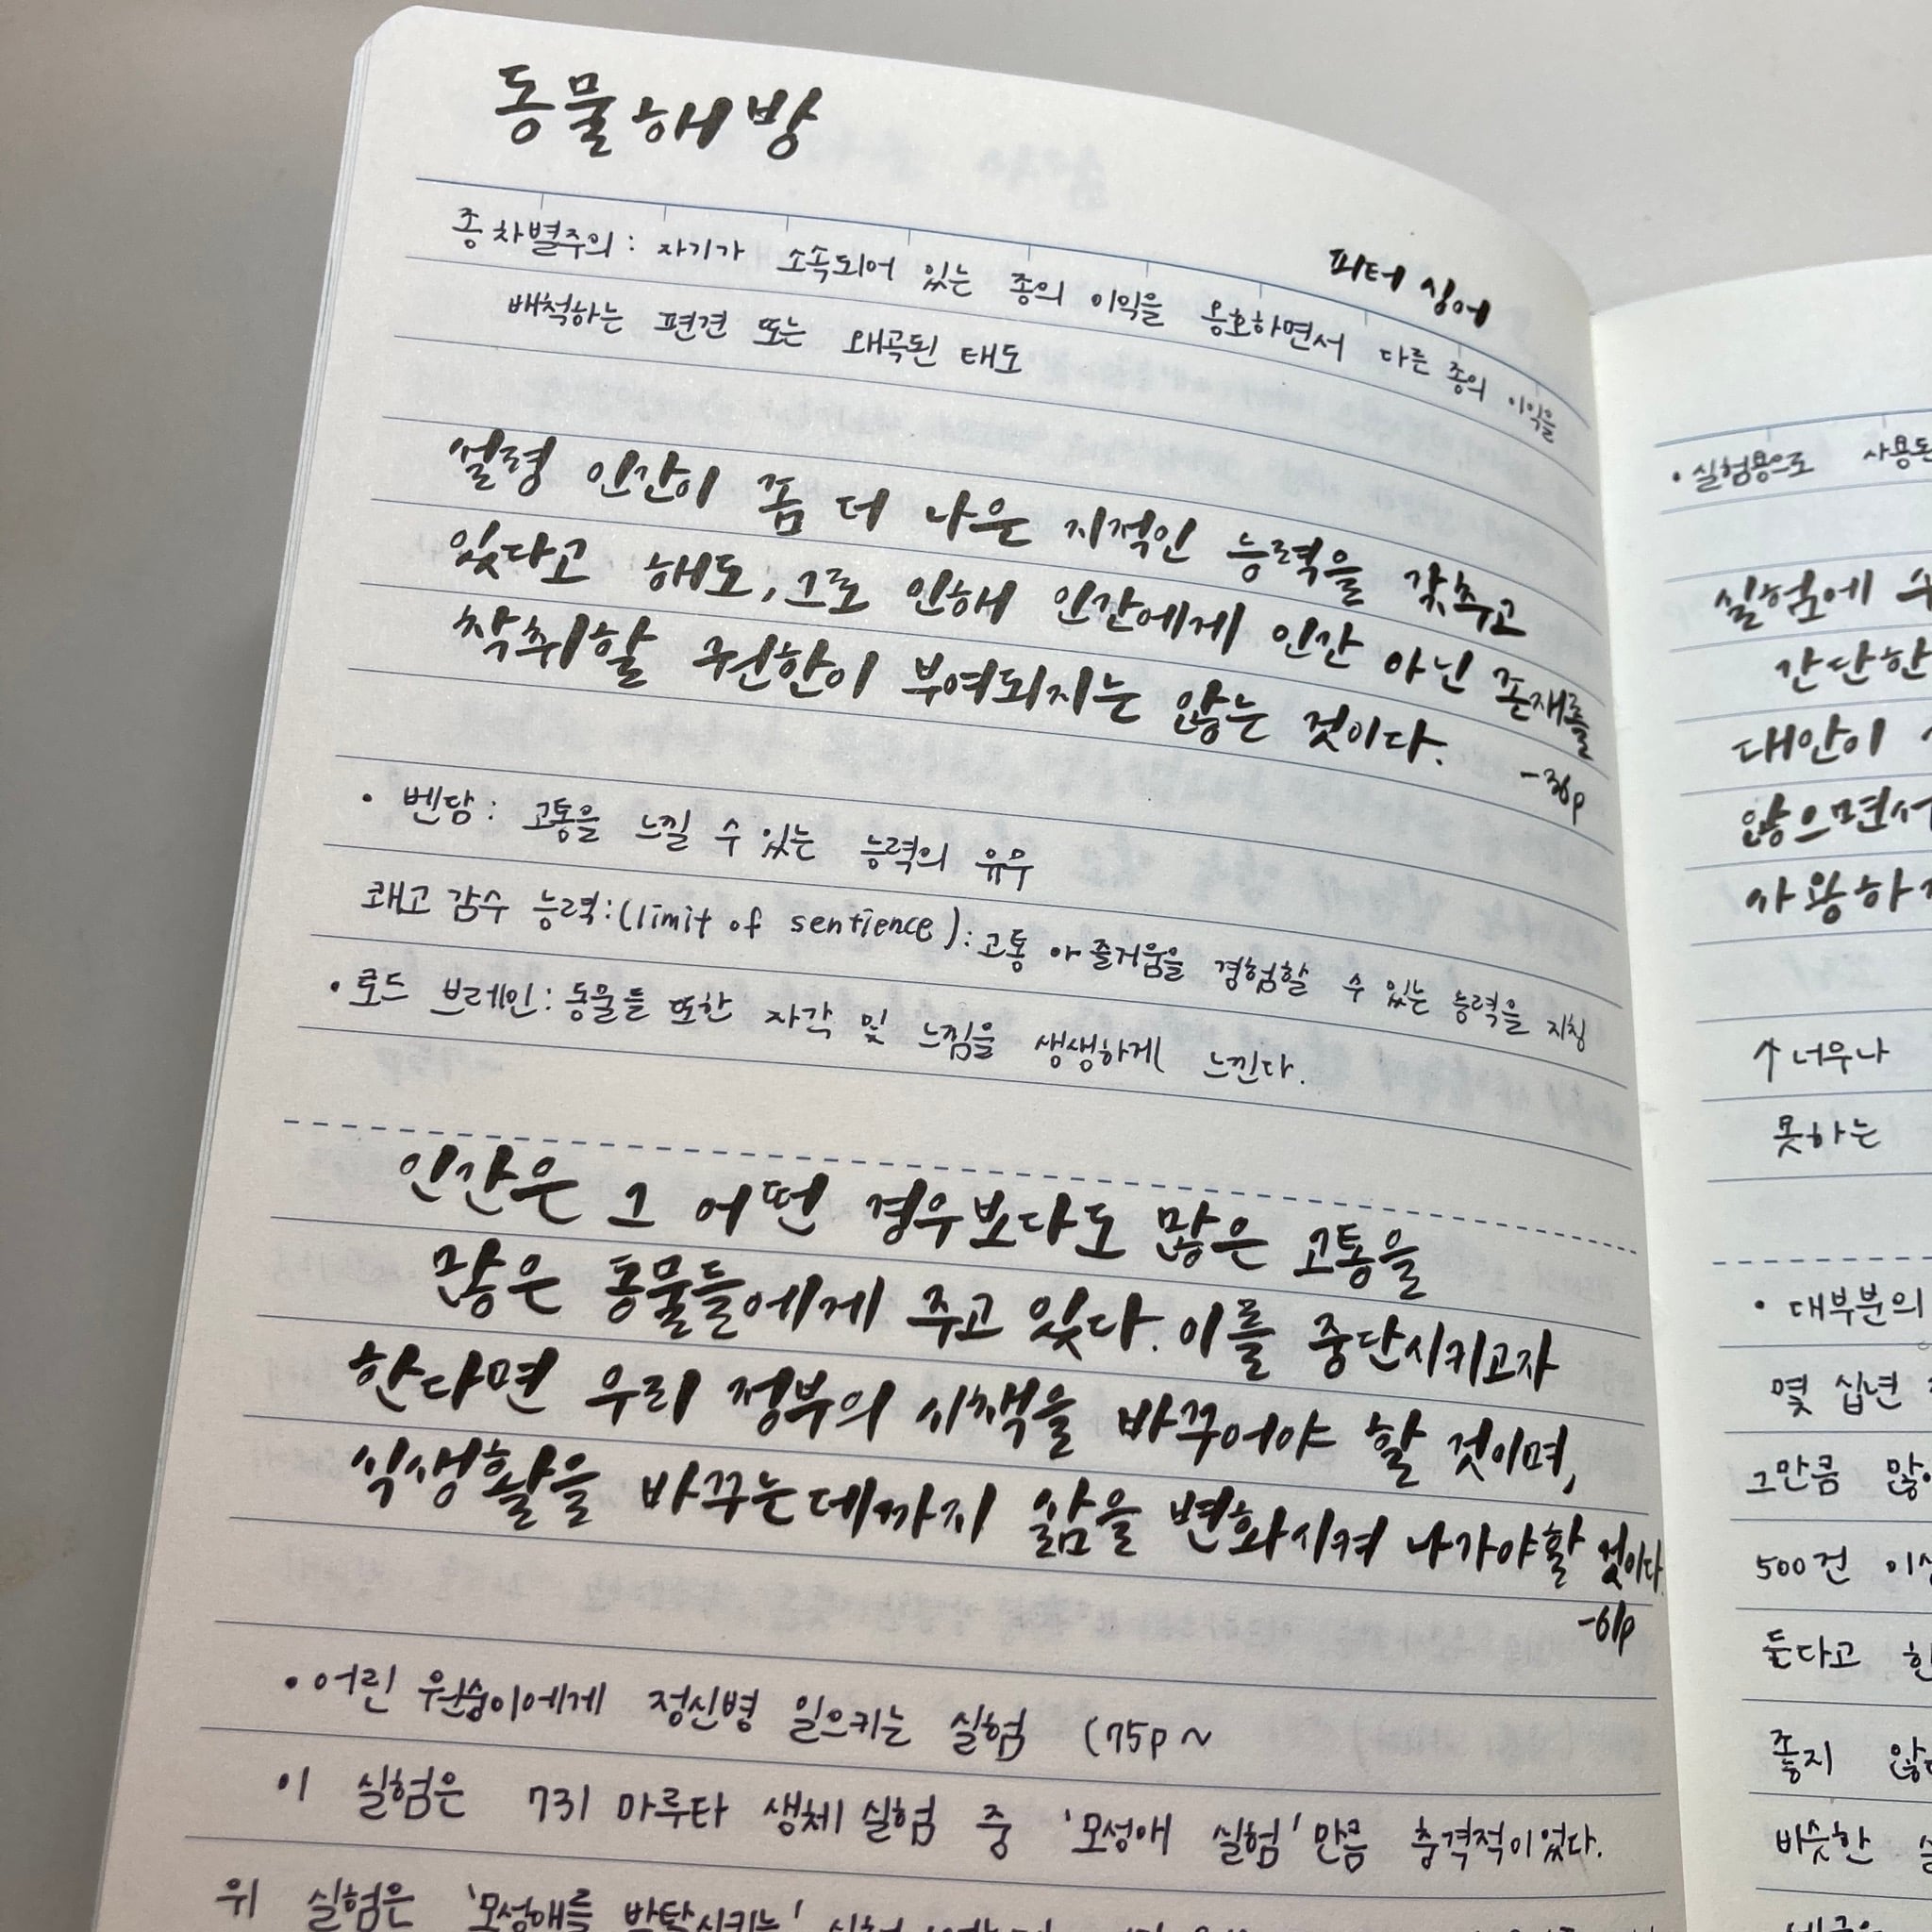 동물해방
피터 싱어
종차별주의 : 자기가 소속되어 있는 종의 이익을 옹호하면서 다른 종의 이익을
배척하는 편견 또는 왜곡된 태도
설령 인간이 좀 더 나은 지적인 능력을 갖추고
있다고 해도, 그로 인해 인간에게 인간 아닌 존재를
착취할 권한이 부여되지는 않는 것이다.
-36p
• 벤담 : 고통을 느낄 수 있는 능력의 유무
쾌고 감수 능력:(limit of sentience):고통 아 즐거움을 경험할 수 있는 능력을 지칭
• 로드 브레인: 동물들 또한 자각 및 느낌을 생생하게 느낀다.
인간은 그 어떤 경우보다도 많은 고통을
많은 동물들에게 주고 있다. 이를 중단시키고자
한다면 우리 정부의 시책을 바꾸어야 할 것이며,
식생활을 바꾸는데까지 삶을 변화시켜 나가야할 것이다
-61p
• 어린 원숭이에게 정신병 일으키는 실험 (75p ~
이 실험은 731 마루타 생체 실험 중 '모성애 실험'만큼 충격적이었다.
위 실험은 '모성애를 박탈시키는'
• 실험용으로
실험에
간단한
대안이
않으면서
↑ 너우나
못하는
• 대부분의
몇 십년
그만큼
500건
든다고
좋지
비슷한